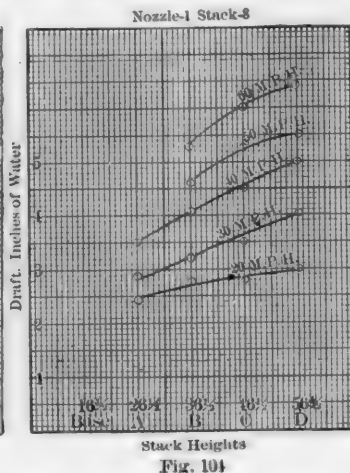 Nozzle-1 Stack-8
Draft. Inches of Water
60 M. P. H.
50 M. P. H.
40 M. P. H.
30 M. P. H.
20 M. P. H.
5
4
3
2
1
Base A B C D
Stack Heights
Fig. 104